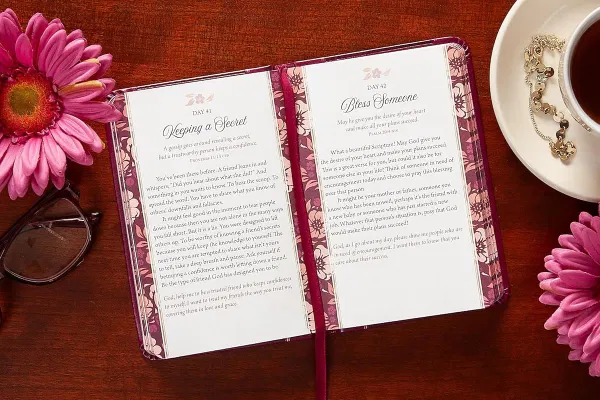 DAY 41
Keeping a Secret
A gossip goes around revealing a secret,
But a trustworthy person keeps a confidence.
You've been there before. A friend leans in and
whispers, "Did you hear about what she did?" And it's
something in you wants to know. To hear the scoop. To
spread the word. You have to share what you know of
others' downfalls and failures.
It might feel good in the moment to tear people
down because then you are not alone in the many ways
you fall short. But it is a lie. You were designed to lift
others up. To be worthy of knowing a friend's secrets
because you will keep the knowledge to yourself. The
next time you are tempted to share what isn't yours
to tell, take a deep breath and pause. Ask yourself if
betraying a confidence is worth letting down a friend.
Be the type of friend God has designed you to be.
God, help me to be a trusted friend who keeps confidences
to myself. I want to treat my friends the way you treat me,
covering them in love and grace.
DAY 42
Bless Someone
May he give you the desire of your heart
and make all your plans succeed.
What a beautiful Scripture! May God give you
the desire of your heart and make your plans succeed.
This is a great verse for you, but could it also be for
someone else in your life? Think of someone in need of
encouragement today and choose to pray this blessing
over that person.
It might be your mother or father, someone you
know who has been unwell, perhaps it's the friend with
a new baby or someone who has just started a new
job. Whatever that person's situation, to pray that God
would make their plans succeed!
God, as I go about my day, please show me people who are
in need of encouragement. I want them to know that you
care about their success.